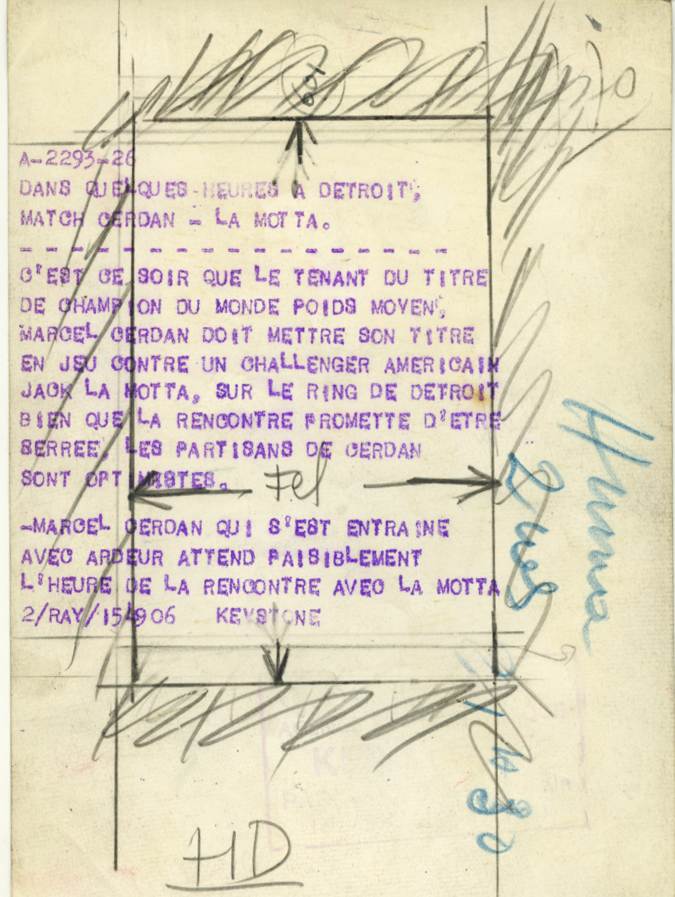 A-2293-26
DANS QUELQUES-HEURES A DETROIT,
MATCH CERDAN - LA MOTTA.
- - - - - - - - - - - - - - - - - -
C'EST CE SOIR QUE LE TENANT DU TITRE
DE CHAMPION DU MONDE POIDS MOYEN,
MARCEL CERDAN DOIT METTRE SON TITRE
EN JEU CONTRE UN CHALLENGER AMERICAIN
JACK LA MOTTA, SUR LE RING DE DETROIT
BIEN QUE LA RENCONTRE PROMETTE D'ETRE
SERREE, LES PARTISANS DE CERDAN
SONT OPTIMISTES.
-MARCEL CERDAN QUI S'EST ENTRAINE
AVEC ARDEUR ATTEND PAISIBLEMENT
L'HEURE DE LA RENCONTRE AVEC LA MOTTA
2/RAY/154906 KEYSTONE
HD